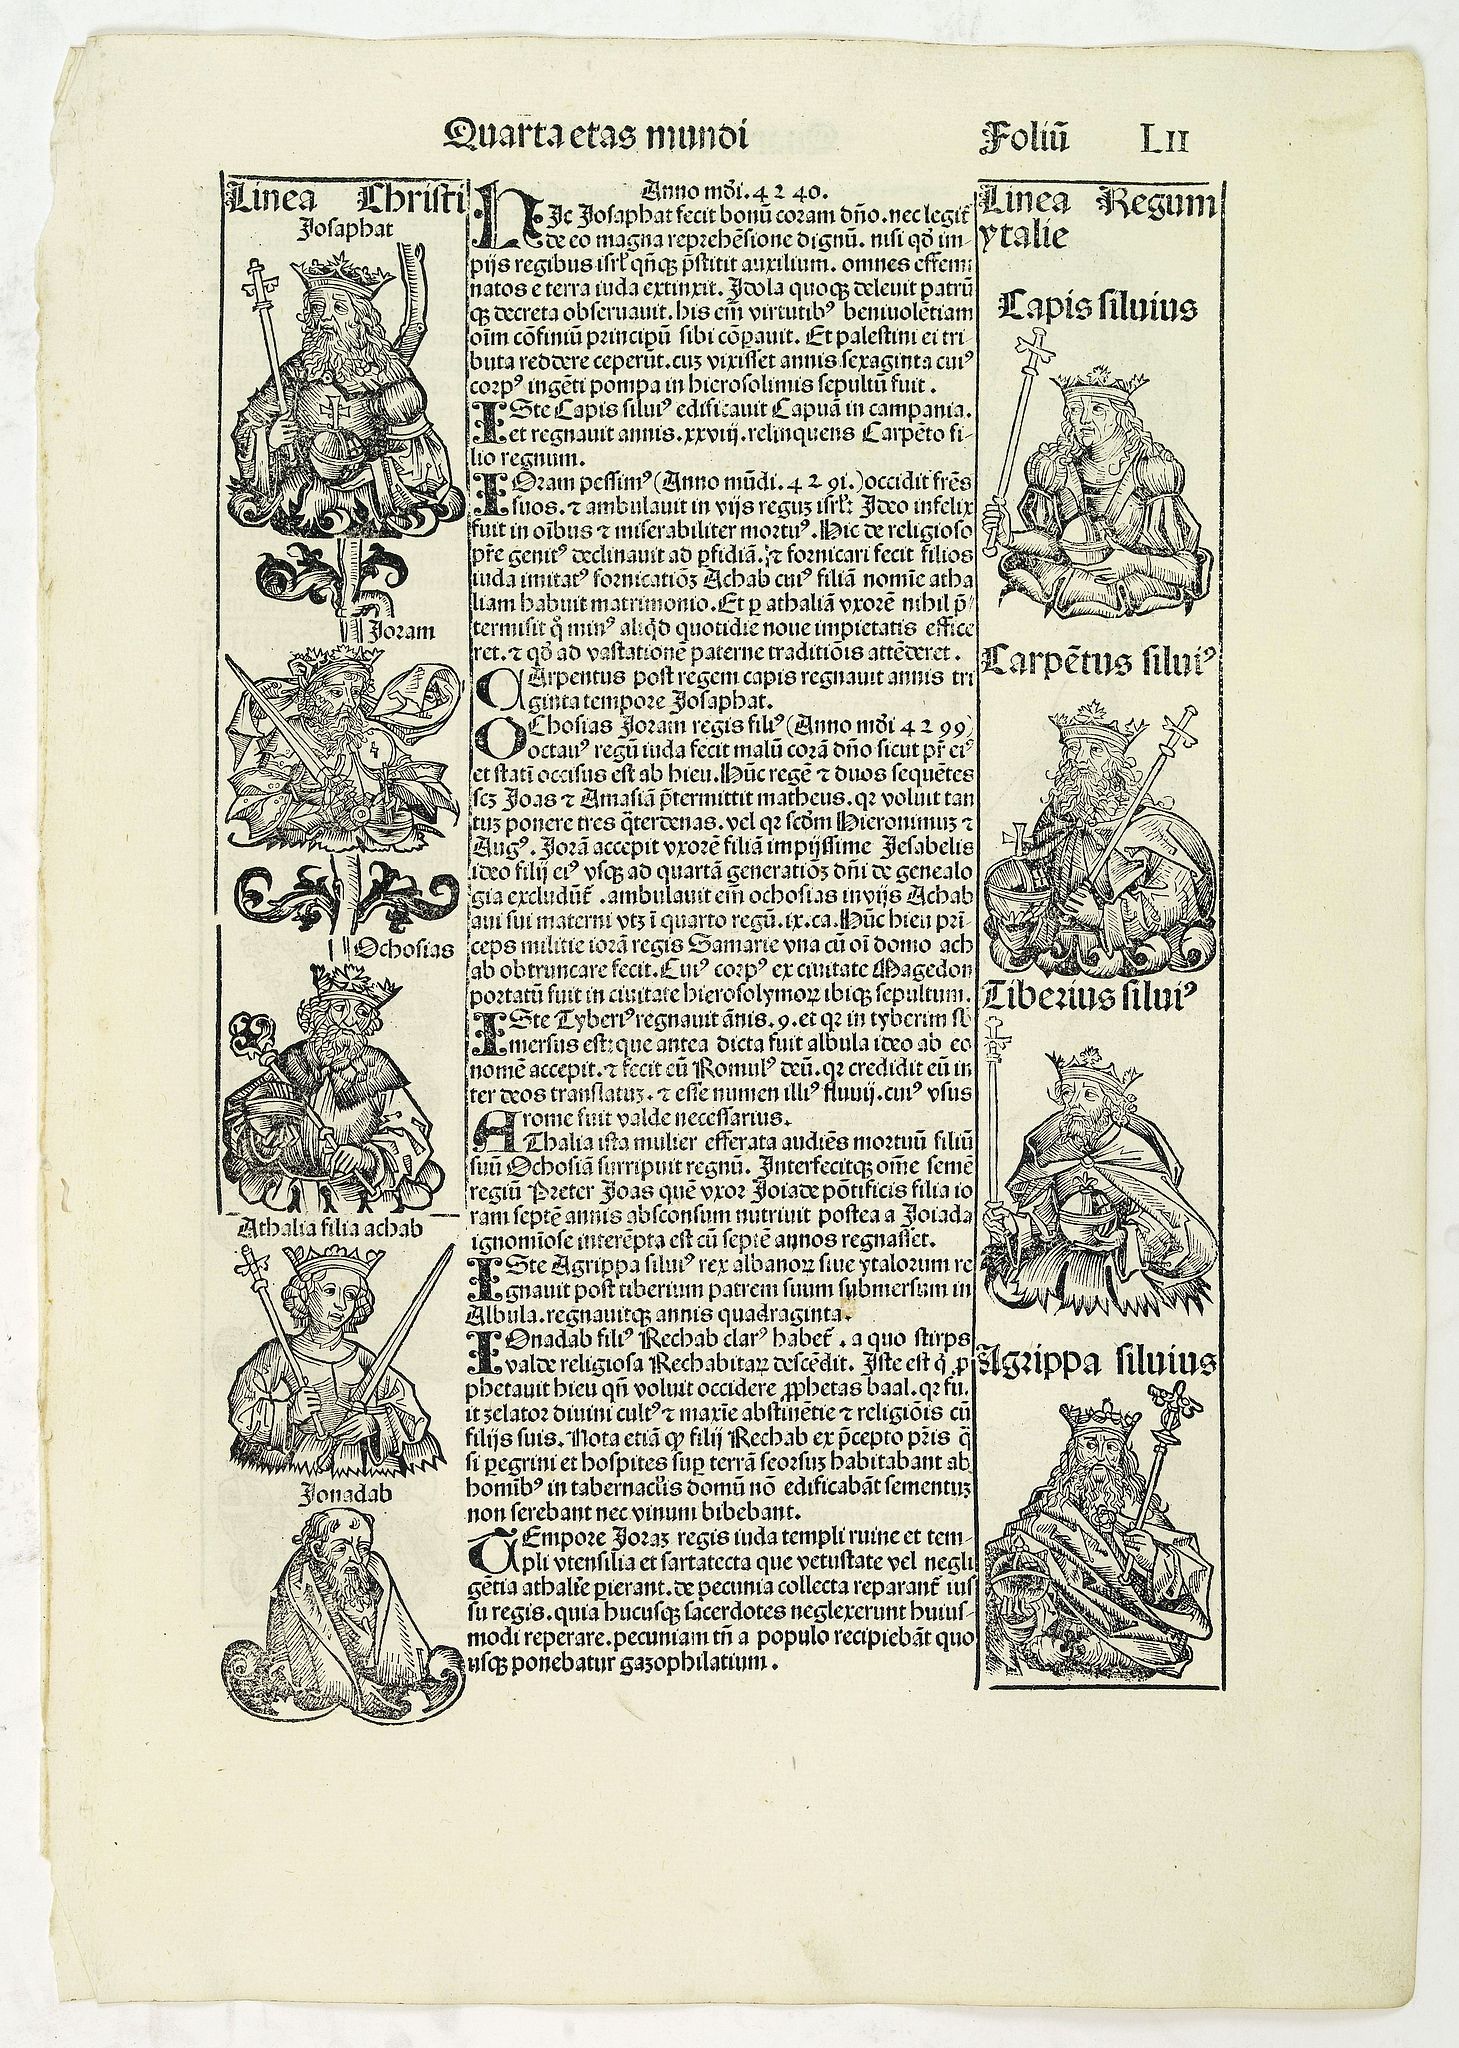 Quarta etas mundi
Foliū LII
Linea Christi
Josaphat
Joram
Ochosias
Athalia filia achab
Jonadab
Anno mdi. 4 2 40.
HJc Josaphat fecit bonū coram dño. nec legit̄
de eo magna reprehēsione dignū. nisi qd im-
pijs regibus isrl' qñqꝫ p̄stitit auxilium. omnes effemi
natos e terra iuda extinxit. Idola quoqꝫ deleuit patrū
qꝫ decreta obseruauit. his em̄ virtutibꝰ beniuolētiam
oīm cōfiniū principū sibi cōparauit. Et palestini ei tri
buta reddere ceperūt. cuꝫ vixisset annis sexaginta cuiꝰ
corpꝰ ingēti pompa in hierosolimis sepultū fuit.
ISte Capis siluiꝰ edificauit Capuā in campania.
et regnauit annis. xxviij. relinquens Carpēto fi-
lio regnum.
IOram pessimꝰ (Anno mūdi. 4 2 91.) occidit frēs
suos. ⁊ ambulauit in vijs reguꝫ isrl': Ideo infelix
fuit in oībus ⁊ miserabiliter mortuꝰ. Hic de religioso
pr̄e genitꝰ declinauit ad ꝑfidiā. ⁊ fornicari fecit filios
iuda imitatꝰ fornicatiōꝫ Achab cuiꝰ filiā nomīe atha
liam habuit matrimonio. Et ꝑ athaliā vxorē nihil p̄-
termisit q̊ minꝰ aliqd quotidie noue impietatis effice
ret. ⁊ qd ad vastationē paterne traditiōis attēderet.
CArpentus post regem capis regnauit annis tri
ginta tempore Josaphat.
OChosias Joram regis filiꝰ (Anno mdi 4 2 99)
octauꝰ regū iuda fecit malū corā dño sicut pr̄ eiꝰ
et statī occisus est ab hieu. Hūc regē ⁊ duos sequētes
scꝫ Joas ⁊ Amasiā p̄termittit matheus. qꝛ voluit tan
tuꝫ ponere tres q̄terdenas. vel qꝛ scdm Hieronimuꝫ ⁊
Augꝰ. Jorā accepit vxorē filiam impijssime Jesabelis
ideo filij eiꝰ vsqꝫ ad quartā generatiōꝫ dñi de genealo
gia excludūt̄. ambulauit em̄ ochosias in vijs Achab
aui sui materni vtꝫ ī quarto regū. ix. ca. Hūc hieu prī
ceps militie iorā regis Samarie vna cū oī domo ach
ab obtruncare fecit. Cuiꝰ corpꝰ ex ciuitate Magedon
portatū fuit in ciuitate hierosolymoꝝ ibiqꝫ sepultum.
ISte Tyberiꝰ regnauit ānis. 9. et qꝛ in tyberim sb
mersus est: que antea dicta fuit albula ideo ab eo
nomē accepit. ⁊ fecit eū Romulꝰ deū. qꝛ credidit eū in
ter deos translatuꝫ. ⁊ esse numen illiꝰ fluuij. cuiꝰ vsus
rome fuit valde necessarius.
AThalia ista mulier efferata audiēs mortuū filiū
suū Ochosiā surripuit regnū. Interfecitqꝫ om̄e semē
regiū Preter Joas quē vxor Joiade pōtificis filia io
ram septē annis absconsum nutriuit postea a Joiada
ignomīose interēpta est cū septē annos regnasset.
ISte Agrippa siluiꝰ rex albanoꝝ siue ytalorum re
gnauit post tiberium patrem suum submersum in
Albula. regnauitqꝫ annis quadraginta.
IOnadab filiꝰ Rechab clarꝰ habet̄. a quo stirps
valde religiosa Rechabitaꝝ descēdit. Iste est q̇ ꝓ
phetauit hieu qñ voluit occidere ꝓphetas baal. qꝛ fu.
it zelator diuini cultꝰ ⁊ maxīe abstinētie ⁊ religiōis cū
filijs suis. Nota etiā ꝙ filij Rechab ex p̄cepto pr̄is q̄
si ꝑegrini et hospites suꝑ terrā seorsuꝫ habitabant ab
homībꝰ in tabernacl'is domū nō edificabāt sementuꝫ
non serebant nec vinum bibebant.
TEmpore Joraꝫ regis iuda templi ruine et tem-
pli vtensilia et sartatecta que vetustate vel negli
gētia athalie ꝑierant. de pecunia collecta reparant̄ ius
su regis. quia hucusqꝫ sacerdotes neglexerunt huius-
modi reperare. pecuniam tn̄ a populo recipiebāt quo
usqꝫ ponebatur gazophilatium.
Linea Regum
ytalie
Capis siluius
Carpētus siluiꝰ
Tiberius siluiꝰ
Agrippa siluius